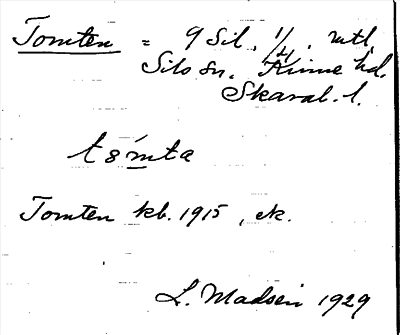 Tomten = 9 Sil. 1/4. mtl.
Sils sn. Kinne hd.
Skarab. l.
t8m̀ta
Tomten kb. 1915, ek.
L. Madsen 1929